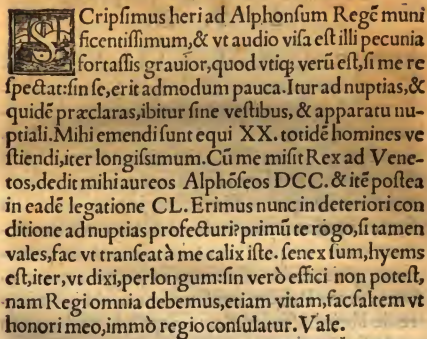 SCripſimus heri ad Alphonſum Regē muni
ficentiſſimum,& vt audio viſa eſt illi pecunia
fortaſſis grauior,quod vtiqꝫ verū eſt,ſi me re
ſpectat:ſin ſe,erit admodum pauca.Itur ad nuptias,&
quidē præclaras,ibitur ſine veſtibus, & apparatu nu-
ptiali.Mihi emendi ſunt equi XX. totidē homines ve
ſtiendi,iter longiſsimum.Cū me miſit Rex ad Vene-
tos,dedit mihi aureos Alphōſeos DCC. & itē poſtea
in eadē legatione CL. Erimus nunc in deteriori con
ditione ad nuptias profecturi?primū te rogo,ſi tamen
vales,fac vt tranſeat à me calix iſte. ſenex ſum,hyems
eſt,iter,vt dixi,perlongum:ſin verò effici non poteſt,
nam Regi omnia debemus,etiam vitam,fac ſaltem vt
honori meo,immò regio conſulatur. Vale.